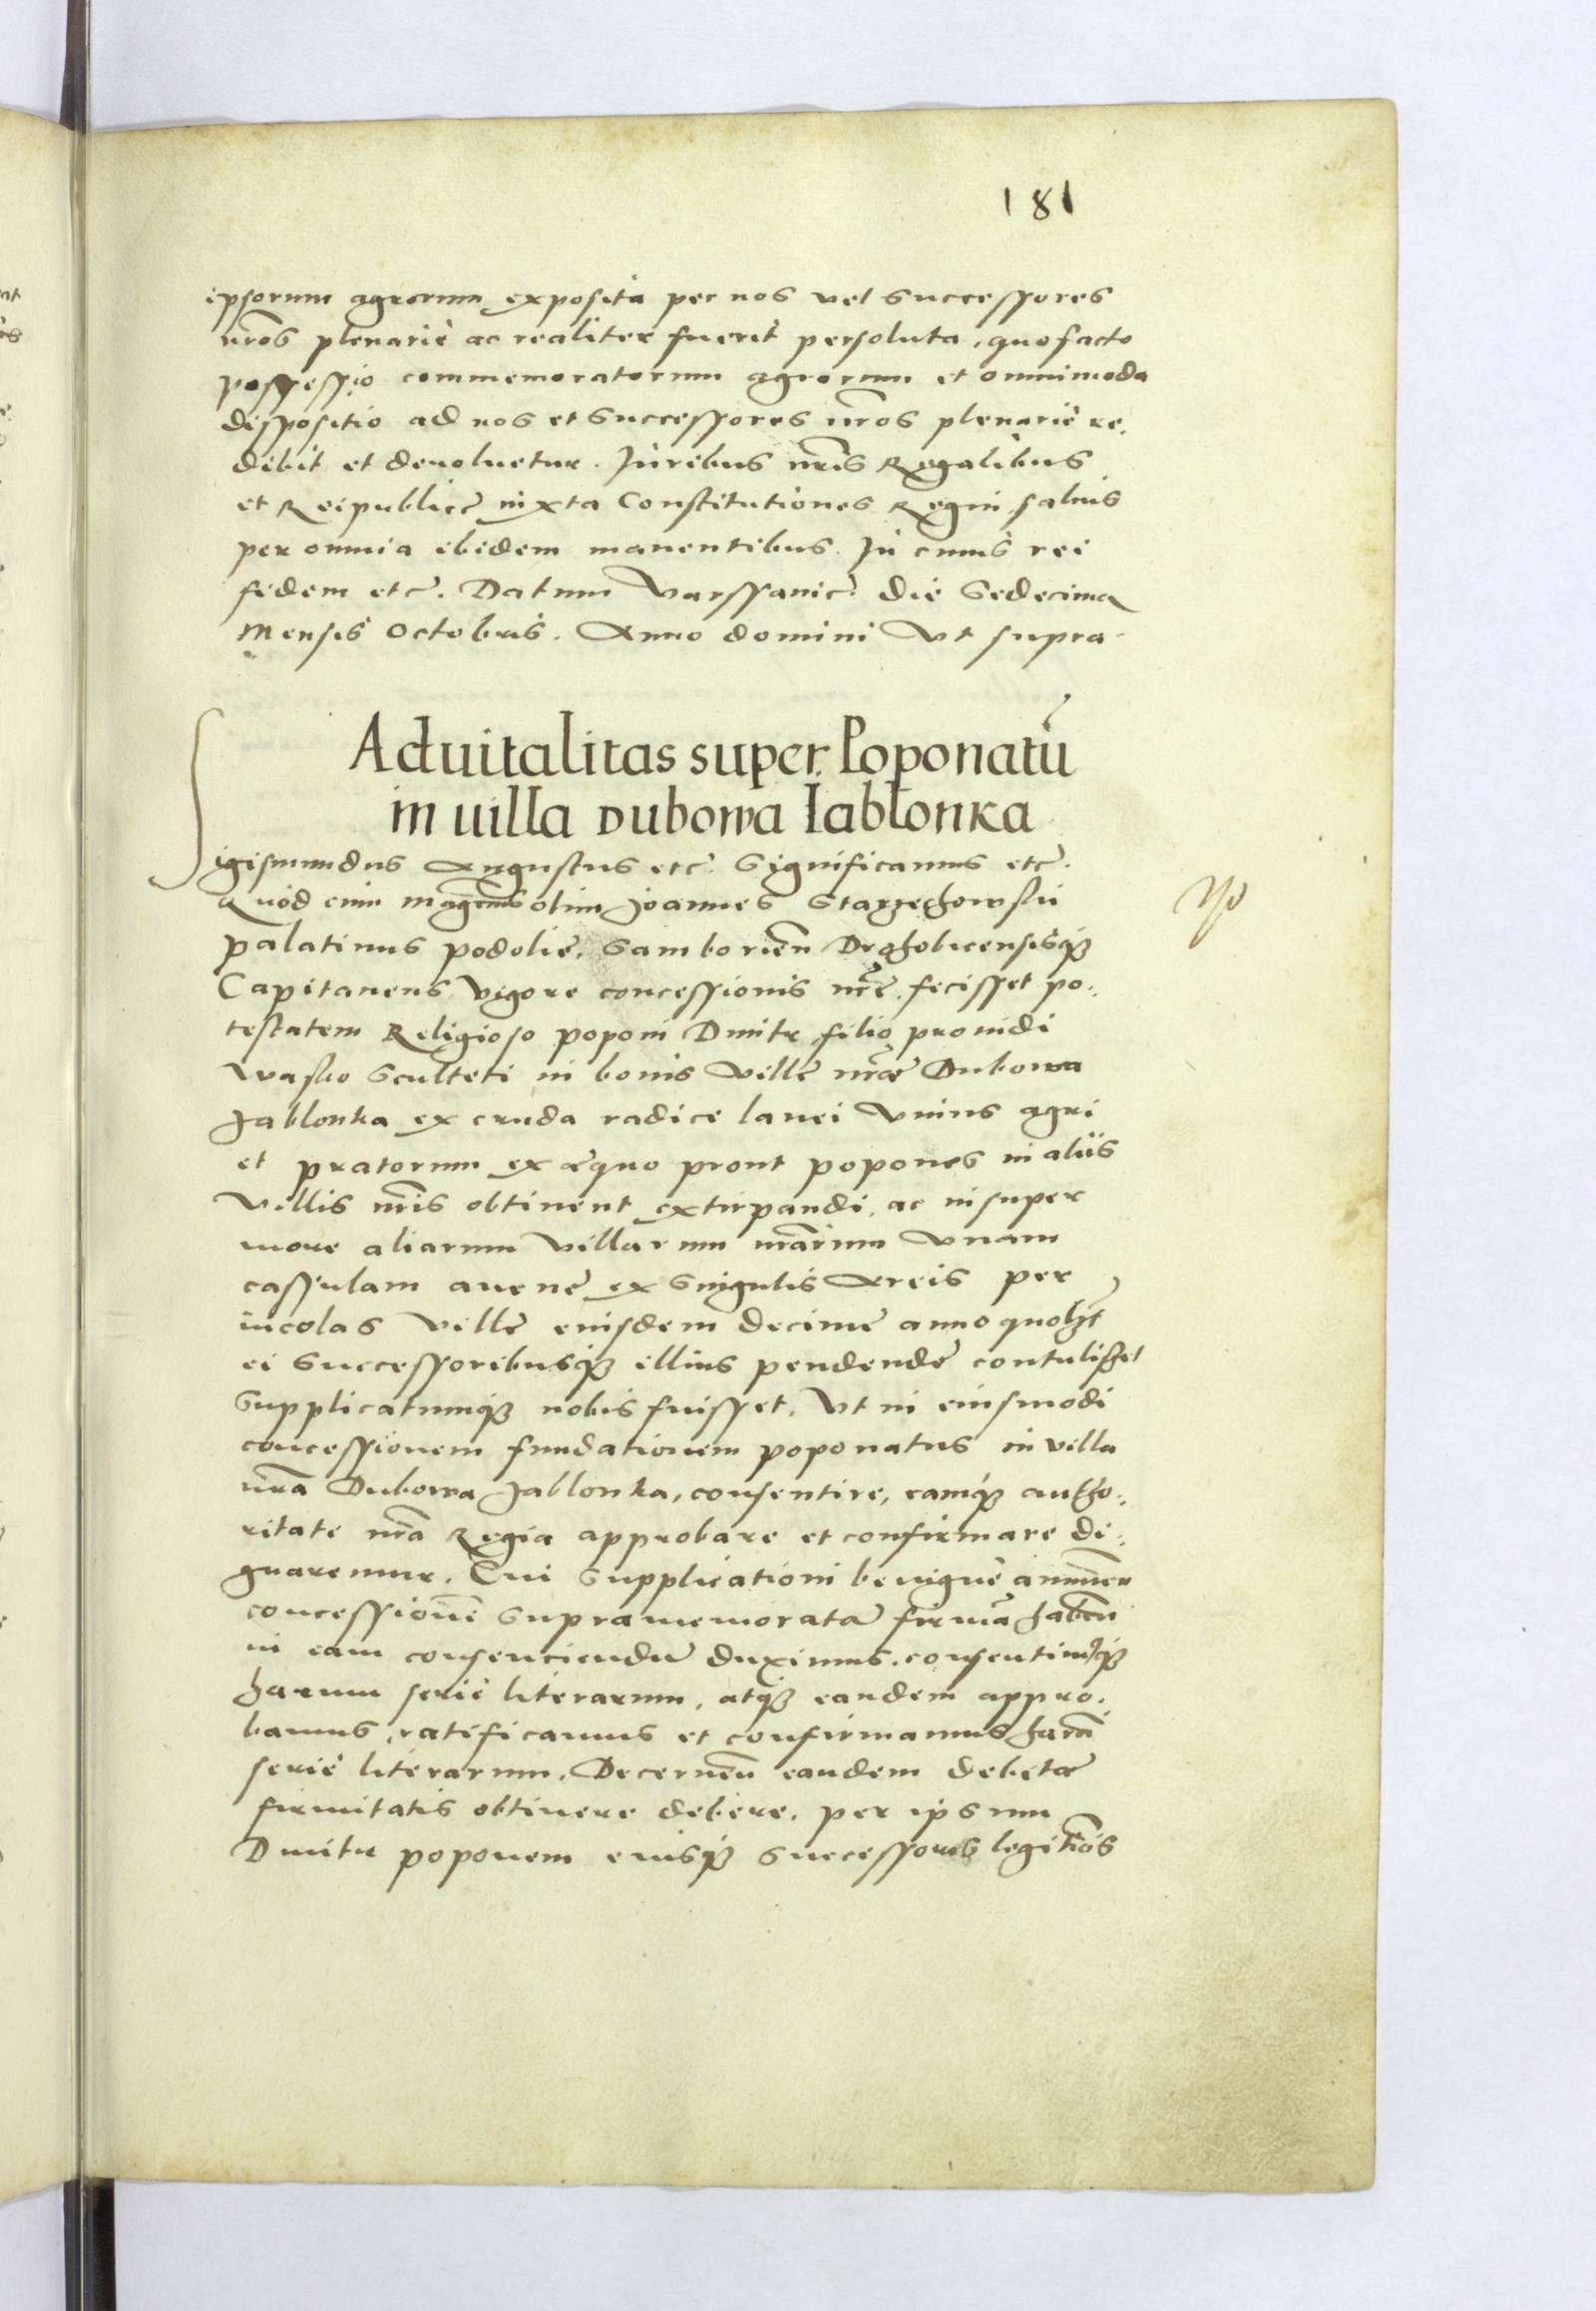 181
ipsorum agrorum exposita per nos vel Successores
nr̃os plenariè ac realiter fuerit persoluta, quo facto
possessio commemoratorum agrorum et omnimoda
dispositio ad nos et Successores nr̃os plenariè re,
dibit et devoluetur. Juribus nr̃is Regalibus
et Reipublicę iuxta Constitutiones Regni saluis
per omnia ibidem manentibus. In cuius rei
fidem etc. Datum Varssauię. die Sedecima
Mensis Octobris. Anno domini Vt supra.
Aduitalitas super Poponatũ
in uilla Dubowa Iablonka
Sigismundus Augustus etc. Significamus etc.
Quod cum mag̃cus olim Joannes Starzechowski
palatinus podolie, Samborieñ Drohobicensisq3
Capitaneus, vigore concessionis nr̃e, fecisset po,,
testatem Religioso poponi Dmitr filio prouidi
Wasko Sculteti in bonis Villę nr̃æ Dubowa
Jablonka ex cruda radice lanei Vnius agri
et pratorum ex æquo prout popones in aliis
Villis nr̃is obtinent extirpandi, ac insuper
more aliarum Villarum nr̃arum Vnam
cassulam auenę ex Singulis Areis per
incolas Villę eiusdem decimę anno quoht̃
ei Successoribusq3 illius pendendę contulisset
Supplicatumq3 nobis fuisset, Vt in eiusmodi
concessionem fundationem poponatus in villa
nr̃a Dubowa Jablonka, consentire, eamq3 autho,,
ritate nr̃a Regia approbare et confirmare di,,
gnaremur. Cui Supplicationi benignè annueñ
concessionẽ Supramemoratã firmã habeñ
in eam consenciendũ duximus, consentimusq3
harum seriè literarum, atq3 eandem appro,
bamus, ratificamus et confirmamus har̃u
seriè literarum. Decerneñ eandem debitæ
firmitatis obtinere debere, per ipsum
Dmitr poponem eiusq3 successores legitiõs